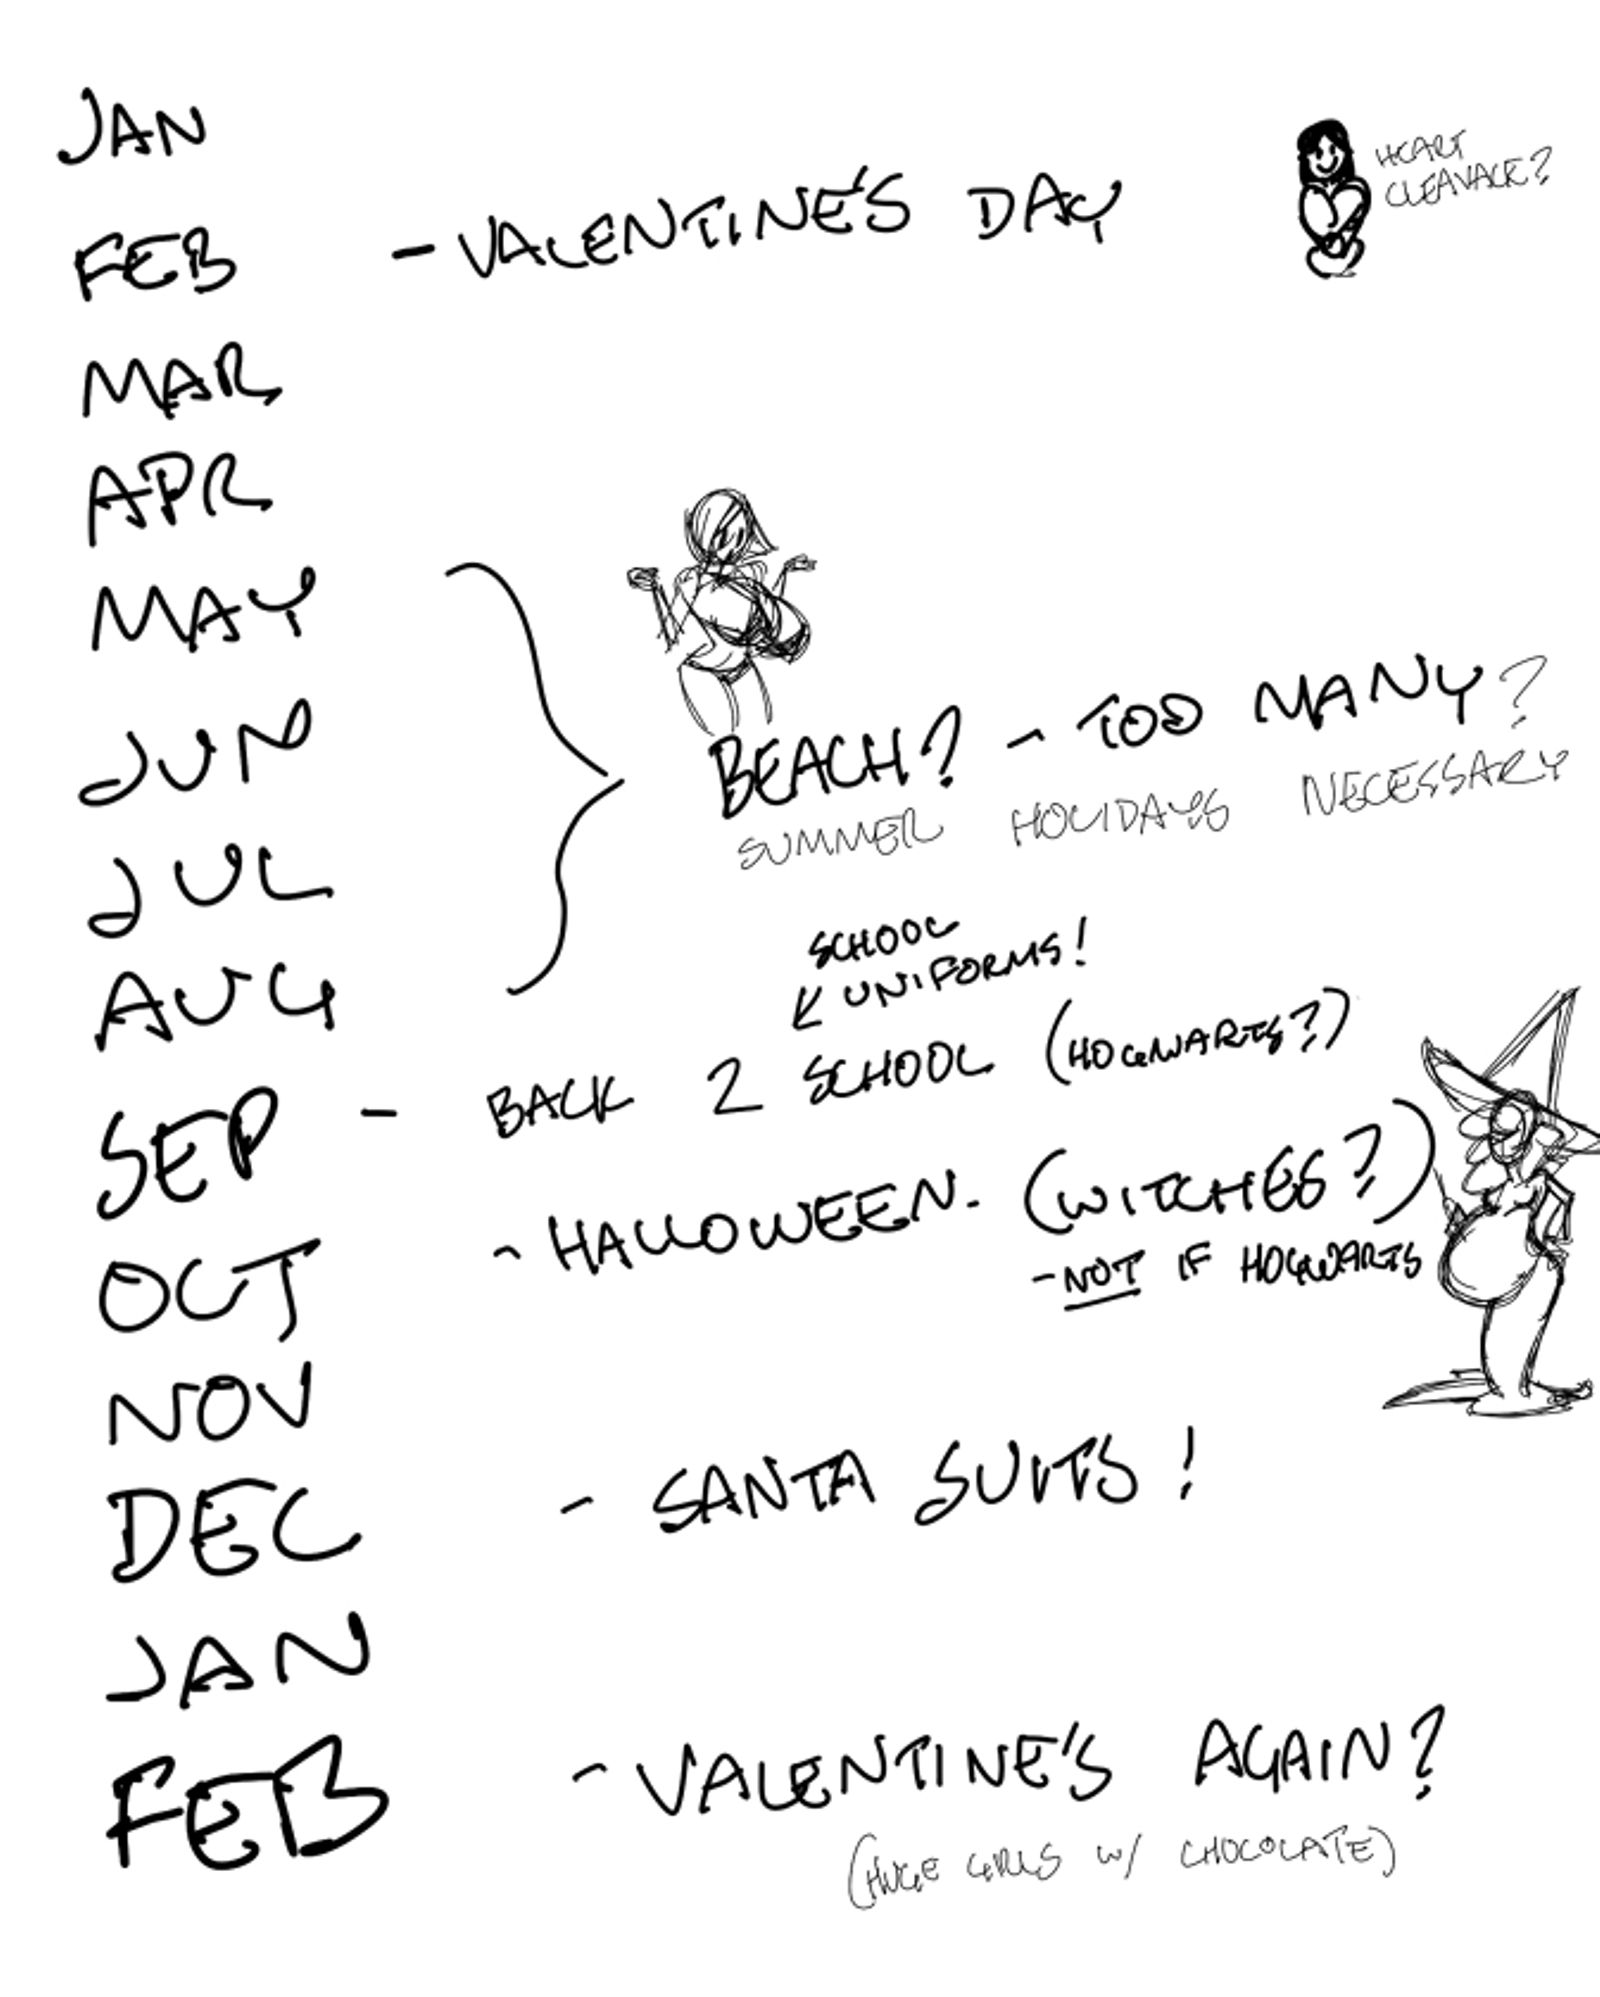 JAN
HEART
CLEAVAGE?
FEB - VALENTINE'S DAY
MAR
APR
MAY
JUN
BEACH? - TOO MANY?
SUMMER HOLIDAYS NECESSARY
JUL
AUG
SCHOOL
UNIFORMS!
SEP - BACK 2 SCHOOL (HOGWARTS?)
OCT - HALLOWEEN. (WITCHES?)
- NOT IF HOGWARTS
NOV
DEC - SANTA SUITS!
JAN
FEB - VALENTINE'S AGAIN?
(HUGE GIRLS W/ CHOCOLATE)